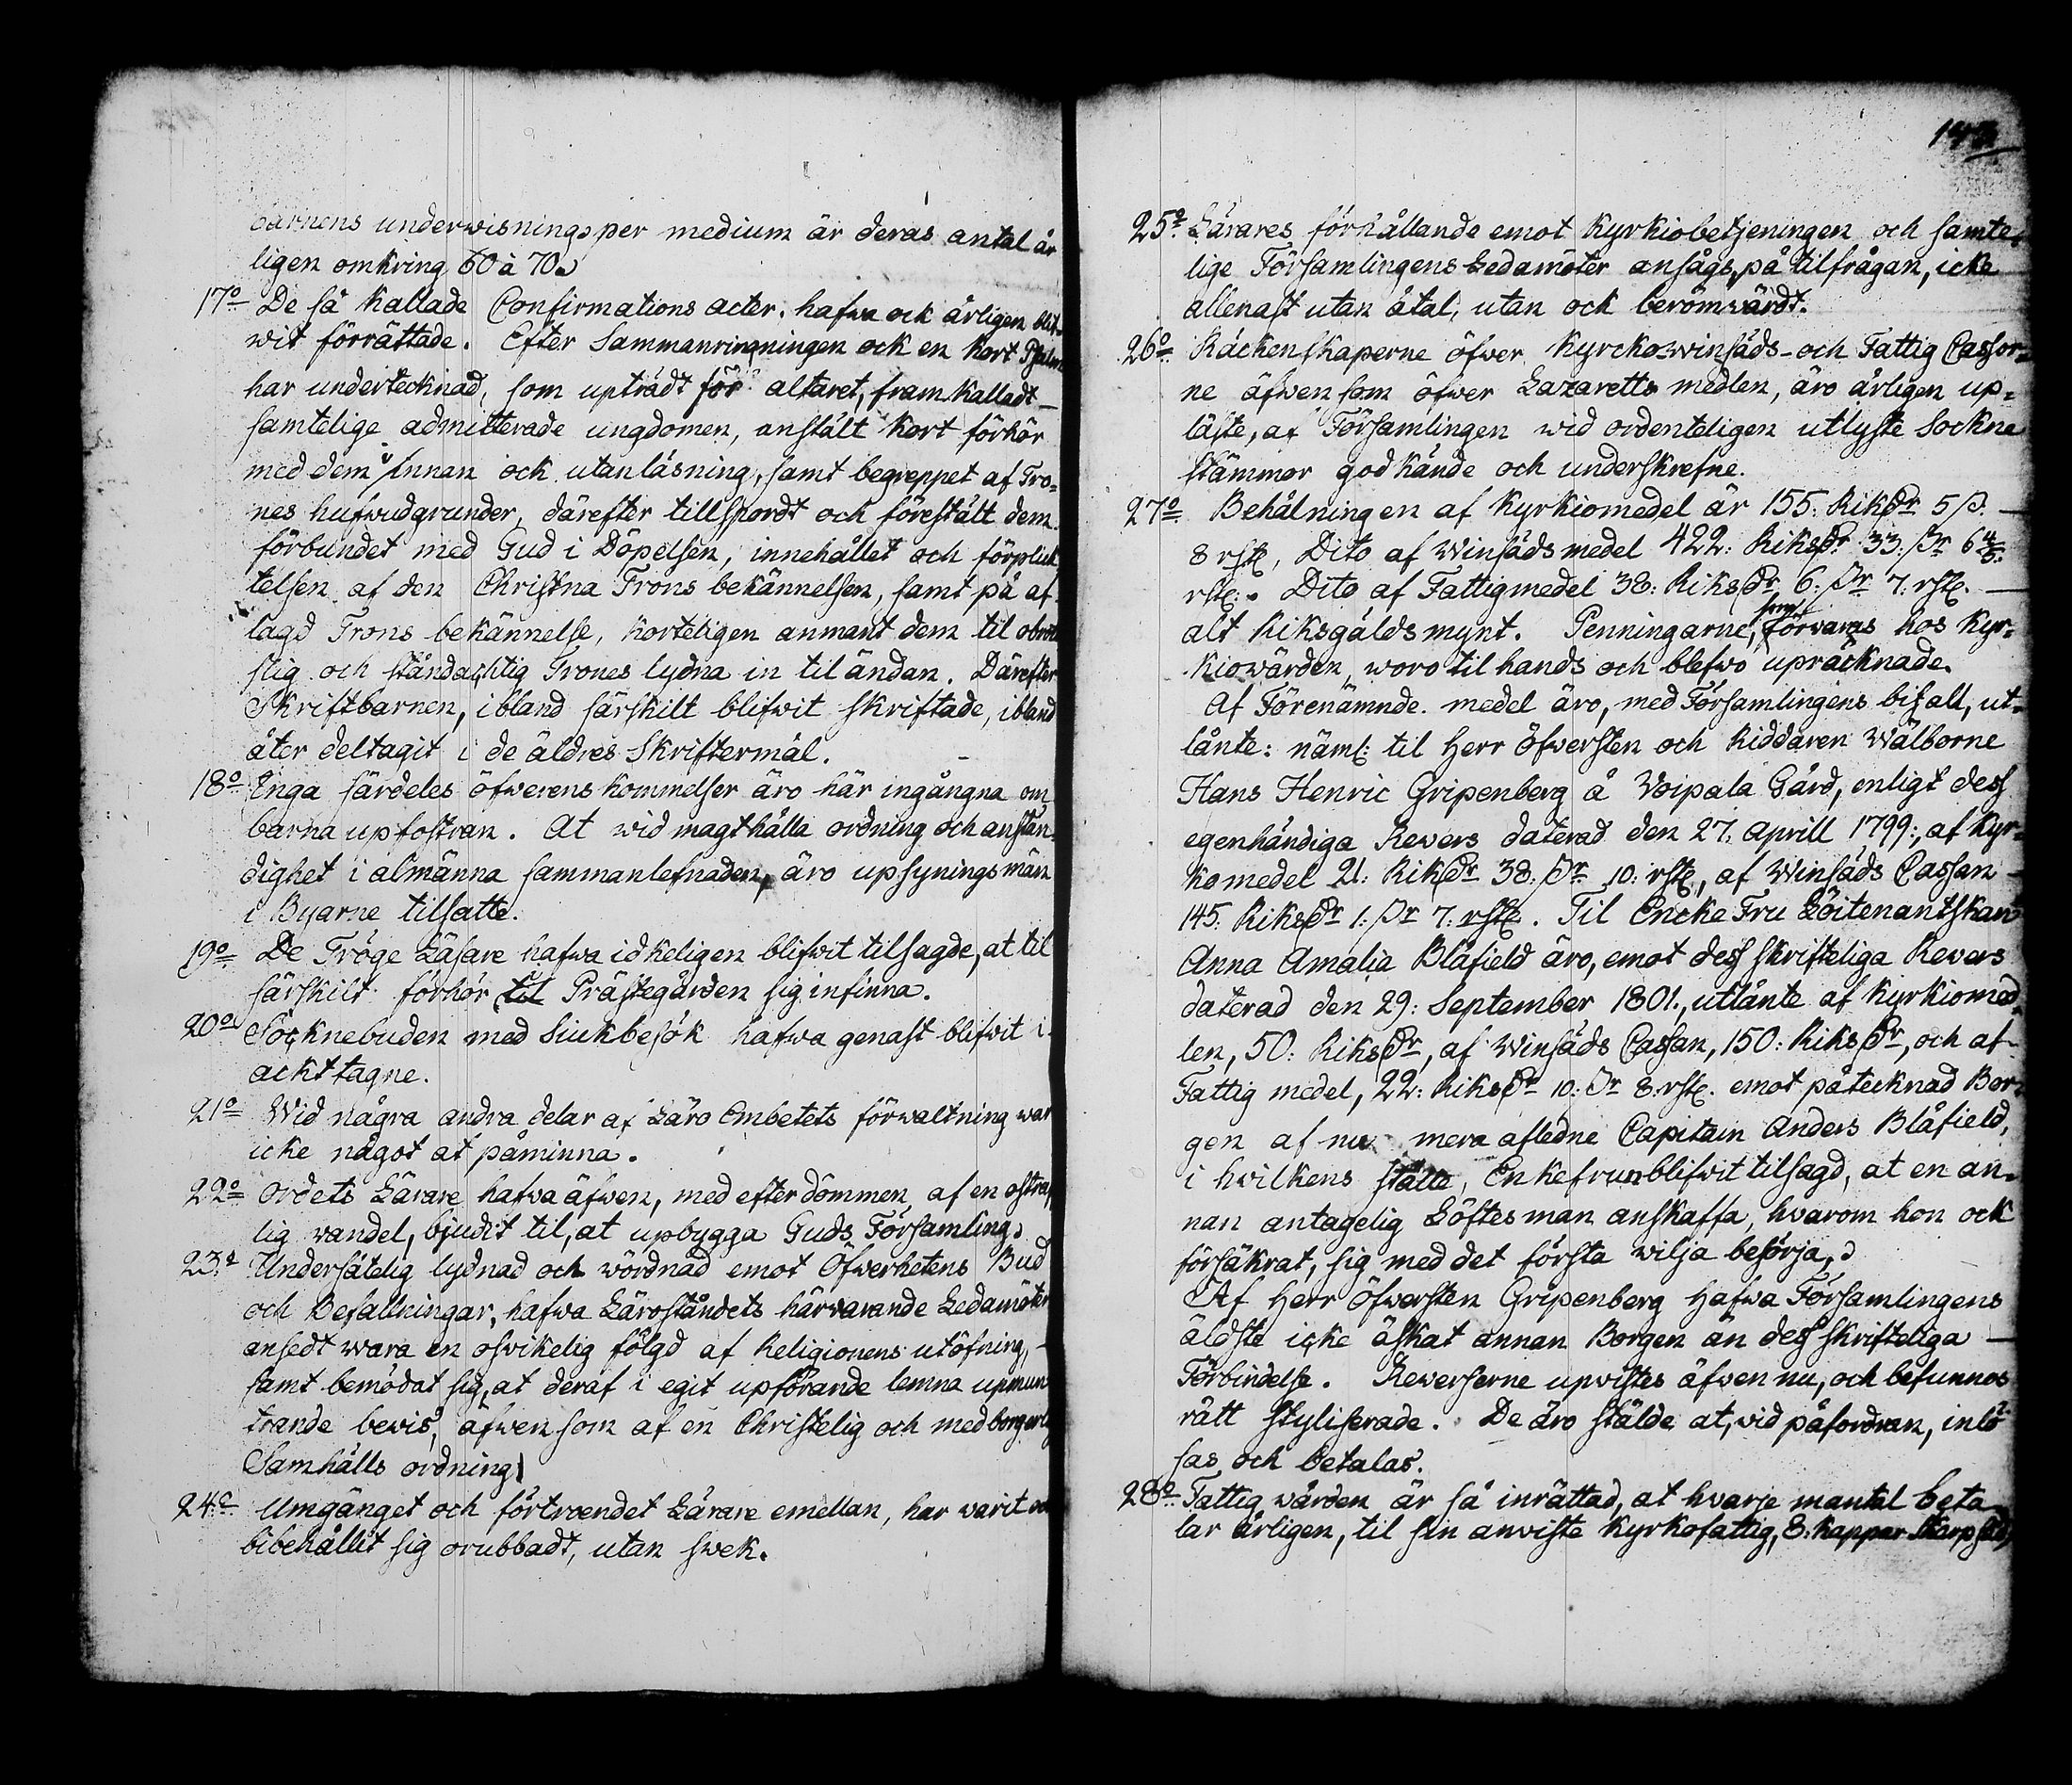 barnens underwisnings per medium är deras antal år
ligen omkring 60 à 70.
17º De så kallade Confirmations acter, hafwa ock årligen blif-
wit förrättade. Efter Sammanringningen ock en kort Psalm
har undertecknad, som upträdt för altaret, framkalladt
samtelige admitterade ungdomen, anstält kort förhör
med dem i Innan ock utanläsning, samt begreppet af Tro=
nes hufwudgrunder, därefter tillspordt och förestält dem
förbundet med Gud i Döpelsen, innehållet och förplick
telsen af den Christna Trons bekännelsen, samt på af
lagd Trons bekännelse, korteligen anmant dem til
stig och ståndachtig Trones lydna in til ändan. Därefter
Skriftbarnen, ibland särskilt blifwit skriftade, ibland
åter deltagit i de äldres Skriftermål.
18º Inga särdeles öfwerenskommelser äro här ingångna om
barna upfostran. At wid magthålla ordning och anstän-
dighet i almänna sammanlefnaden, äro upsyningsmän
i Byarne tilsatte.
19º De Tröge Läsare hafwa idkeligen blifwit tilsagde, at til
särskilt förhör til Prästegården sig infinna.
20º Söcknebuden med Siukbesök hafwa genast blifwit i
akttagne.
21º Wid några andra delar af Läro Embetets förwaltning war
icke något at påminna.
22º Ordets Lärare hafwa äfwen, med efterdömmen af en ostraf
lig vandel, bjudit til, at upbygga Guds Församling.
23º Undersåtelig lydnad och wördnad emot Öfwerhetens Bud
och Befallningar, hafwa Läroståndets härwarande Ledamöter
ansedt wara en oswikelig fölgd af Religionens utöfning,
samt bemödat sig, at deraf i egit upförande lemna upmun
trande bewis, äfwen som af en Christelig och medborgerlig
Samhälls ordning
24º Umgänget och förtroendet Lärare emellan, har warit och
bibehållit sig orubbadt, utan swek.
143
25º Lärares förhållande emot Kyrkiobetjeningen och samte-
lige Församlingens Ledamöter ansågs, på tilfrågan, icke
allenast utan åtal, utan ock berömwärdt.
26º Räckenskaperne öfwer Kyrcko-winsäds- och Fattig Cassor=
ne äfwen som öfwer Lazaretts medlen, äro årligen up=
läste, af Församlingen wid ordenteligen utlyste Sockne
stämmor godkände och underskrefne.
27º Behålningen af Kyrkiomedel är 155. Rikdr 5 ß.
8 rst, Dito af Winsädsmedel 422: Riksdr 33: ßr 6 4/5
rst: Dito af Fattigmedel 38: Riksdr 6: ßr 7: rst.
alt Riksgäldsmynt. Penningarne, som förvaras hos Kyr=
kiowärden, woro tilhands och blefwo upräcknade.
Af Förenämnde medel äro, med Församlingens bifall, ut-
lånte: näml: til Herr Öfwersten och Riddaren Wälborne
Hans Henric Gripenberg å Voipala Gård, enligt dess
egenhändiga Revers daterad den 27. Aprill 1799:, af Kyr-
komedel 21: Rikdr 38: ßr 10: rst, af Winsäds Cassan
145. Riksdr 1: ßr 7: rst. Til Encke Fru Löitenantskan
Anna Amalia Blåfield äro, emot dess skrifteliga Revers
daterad den 29: September 1801., utlånte af Kyrkiomed
len, 50: Riksdr, af Winsäds Cassan, 150: Riksdr, och af
Fattig medel, 22: Riksdr 10: ßr 8 rst. emot påtecknad Bor-
gen af nu mera afledne Capitain Anders Blåfield,
i hwilkens ställe, Enkefrun blifwit tilsagd, at en an-
nan antagelig Löftesman anskaffa, hvarom hon ock
försäkrat, sig med det första wilja besörja,
Af Herr Öfwersten Gripenberg Hafwa Församlingens
äldste icke äskat annan Borgen än dess skrifteliga
Förbindelse. Reverserne upvistes äfwen nu, och befunnos
rätt styliserade. De äro stälde at, wid påfordran, inlö
sas och betalas.
28º Fattig wården är så inrättad, at hvarje mantal beta
lar årligen, til sin anviste Kyrkofattig, 8: kappar Skarp